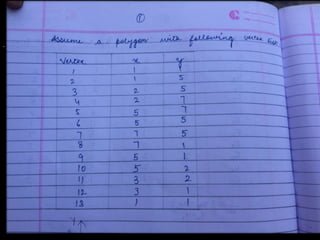 ①
Assume a polygon with following vertex list
Vertex x y
1 1 1
2 1 5
3 2 5
4 2 7
5 5 7
6 5 5
7 7 5
8 7 1
9 5 1
10 5 2
11 3 2
12 3 1
13 1 1
Y